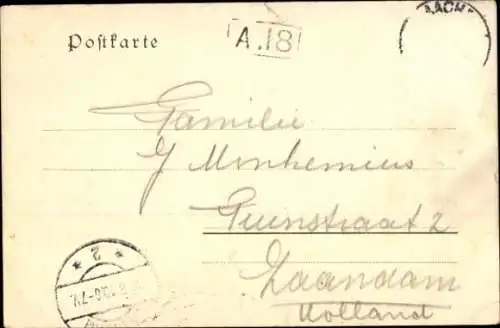 AACH
Postkarte
A.18
Familie
Monhemius
Tuinstraat 2
Zaandam
Holland
* 2 *